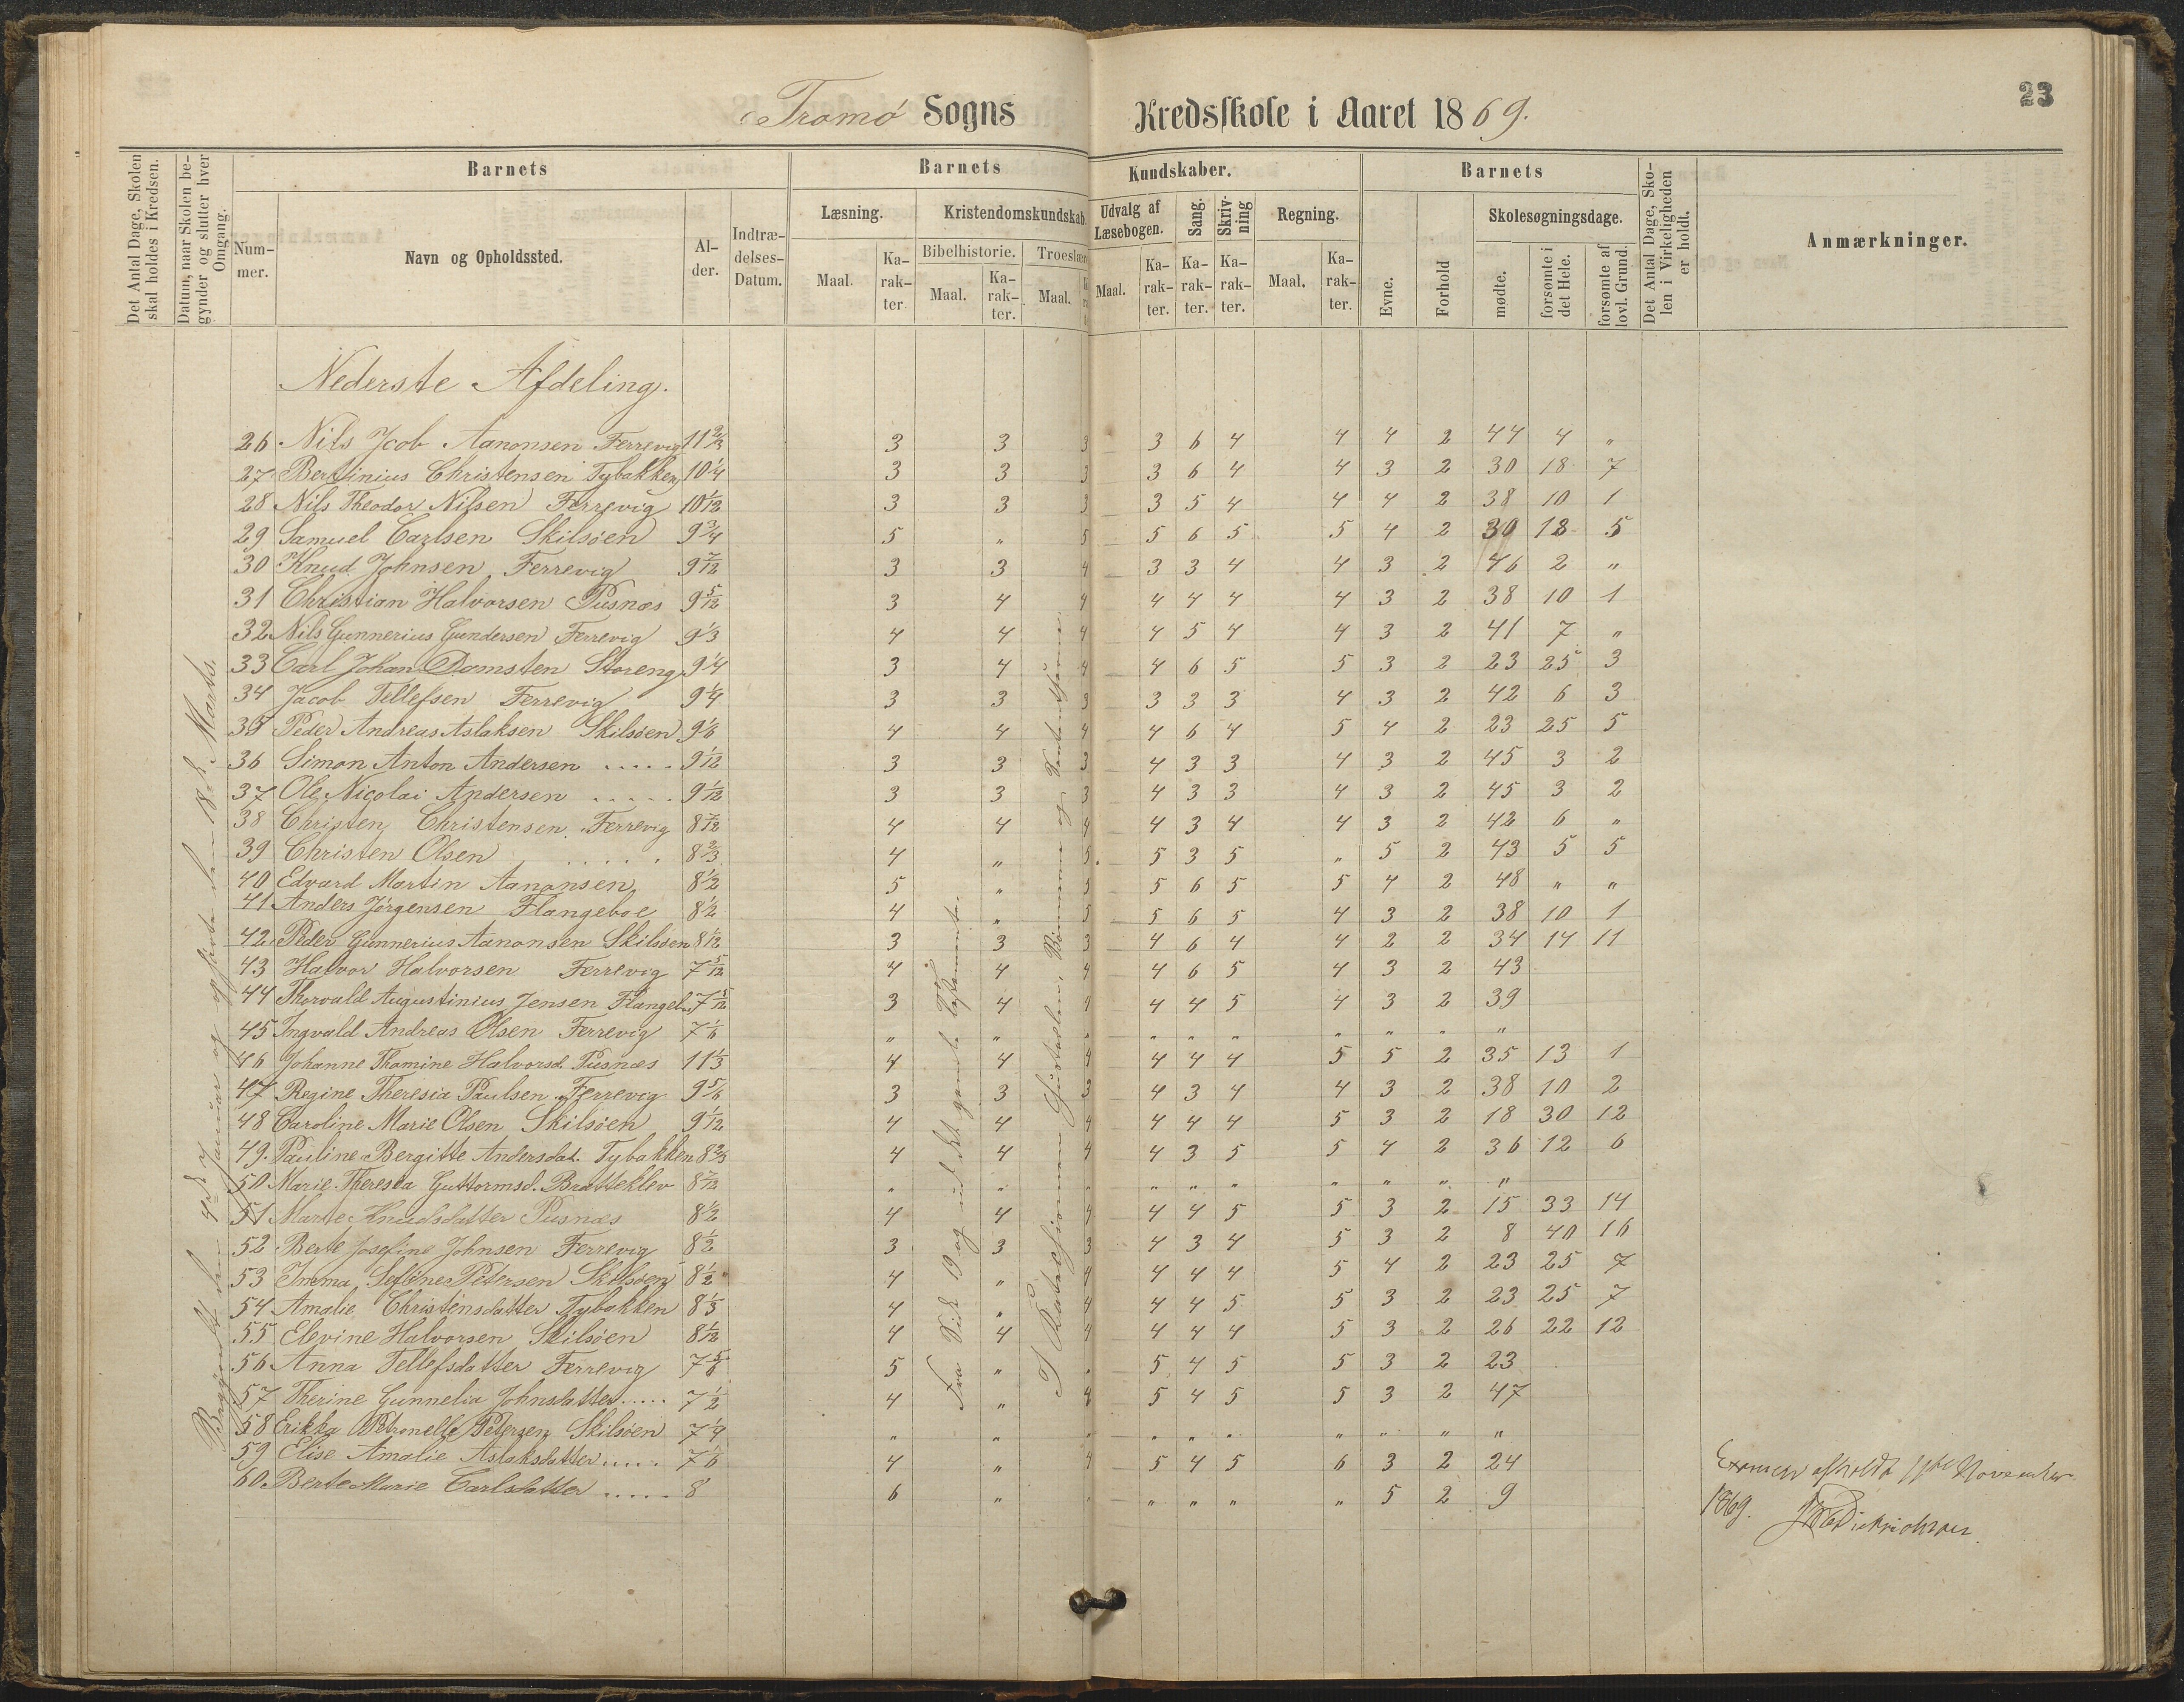 23
Tromø Sogns Kredsskole i Aaret 1869.
Det Antal Dage, Skolen skal holdes i Kredsen.
Datum, naar Skolen begynder og slutter hver Omgang.
Barnets
Nummer.
Navn og Opholdssted.
Alder.
Indtrædelses-Datum.
Barnets Kundskaber.
Læsning.
Maal.
Karakter
Kristendomskundskab.
Bibelhistorie.
Maal.
Karakter.
Troeslære
Maal.
Udvalg af Læsebogen.
Maal.
Karakter.
Sang.
Karakter.
Skrivning
Karakter.
Regning.
Maal.
Karakter.
Barnets
Evne.
Forhold
Skolesøgningsdage.
mødte.
forsømte i det Hele.
forsømte af lovl. Grund.
Det Antal Dage, Skolen i Virkeligheden er holdt.
Anmærkninger.
Nederste Afdeling.
26 Nils Jcob Aanonsen Ferrevig 11 2/3 3 3 3 3 6 4 4 4 2 44 4 "
27 Bertinius Christensen Tybakken 10 1/4 3 3 3 3 6 4 4 3 2 30 18 7
28 Nils Theodor Nilsen Ferrevig 10 1/12 3 3 3 3 5 4 4 4 2 38 10 1
29 Samuel Carlsen Skilsøen 9 3/4 5 " 5 5 6 5 5 4 2 30 18 5
30 Knud Johnsen Ferrevig 9 7/12 3 3 4 3 3 4 4 3 2 46 2 "
31 Christian Halvorsen Pusnæs 9 5/12 3 4 4 4 4 4 4 3 2 38 10 1
32 Nils Gunnerius Gundersen Ferrevig 9 1/3 4 4 4 4 5 4 4 3 2 41 7 "
33 Carl Johan Damsten Storeng 9 1/4 3 4 4 4 6 5 5 3 2 23 25 3
34 Jacob Tellefsen Ferrevig 9 1/4 3 3 3 3 3 3 4 3 2 42 6 3
35 Peder Andreas Aslaksen Skilsøen 9 1/6 4 4 4 4 6 4 5 4 2 23 25 5
36 Simon Anton Andersen ..... 9 1/12 3 3 3 4 3 3 4 3 2 45 3 2
37 Ole Nicolai Andersen ..... 9 1/12 3 3 3 4 3 3 4 3 2 45 3 2
38 Christen Christensen Ferrevig 8 7/12 4 4 4 4 3 4 4 3 2 42 6 "
39 Christen Olsen ..... 8 2/3 4 " 5 5 3 5 " 5 2 43 5 5
40 Edvard Martin Aanonsen 8 1/2 5 " 5 5 6 5 5 4 2 48 " "
41 Anders Jørgensen Flangeboe 8 1/2 4 " 5 5 6 5 4 3 2 38 10 1
42 Peder Gunnerius Aanonsen Skilsøen 8 1/12 3 3 3 4 6 4 4 2 2 34 14 11
43 Halvor Halvorsen Ferrevig 7 5/12 4 4 4 4 6 5 4 3 2 43
44 Thorvald Augustinius Jensen 7 5/12 3 4 4 4 4 5 4 3 2 39
45 Ingvald Andreas Olsen Ferrevig 7 1/6 " " " " " " " " " "
46 Johanne Thomine Halvorsd. Pusnæs 11 1/3 4 4 4 4 4 4 5 5 2 35 13 1
47 Regine Theresia Paulsen Ferrevig 9 5/6 3 3 3 4 3 4 4 3 2 38 10 2
48 Caroline Marie Olsen Skilsøen 9 1/12 4 4 4 4 4 4 5 3 2 18 30 12
49. Pauline Bergitte Andersdat. Tybakken 8 2/3 4 4 4 4 3 5 5 4 2 36 12 6
50 Marie Theresia Guttormsd. Bratteklev 8 7/12 " " " " " " " " "
51 Marte Knudsdatter Pusnæs 8 1/2 4 4 4 4 4 5 5 3 2 15 33 14
52 Berte Josefine Johnsen Ferrevig 8 1/2 3 3 3 4 3 4 5 3 2 8 40 16
53 Petersen Skilsøen 8 1/2 4 " 4 4 4 4 5 4 2 23 25 7
54 Amalie Christensdatter Tybakken 8 1/3 4 " 4 4 4 5 5 3 2 23 25 7
55 Elevine Halvorsen Skilsøen 8 1/12 4 4 4 4 4 4 5 3 2 26 22 12
56 Anna Tellefsdatter Ferrevig 7 5/6 5 " " 5 4 5 5 3 2 23
57 Therine Gunnelia Johnsdatter ..... 7 1/2 4 " 4 5 4 5 5 3 2 47
58 Erikka Petronelle Petersen Skilsøen 7 1/4 " " " " " " " " " "
59 Elise Amalie Aslaksdatter ..... 7 1/6 4 " 4 5 4 5 6 3 2 24
60. Berte Marie Carlsdatter ..... 8 6 " " " " " " 5 2 9
Begyndt den 4de Januar og sluttede den 18de Marts.
Fra Side 19 og ud det gamle Testamente.
Examen afholdt November
1869.